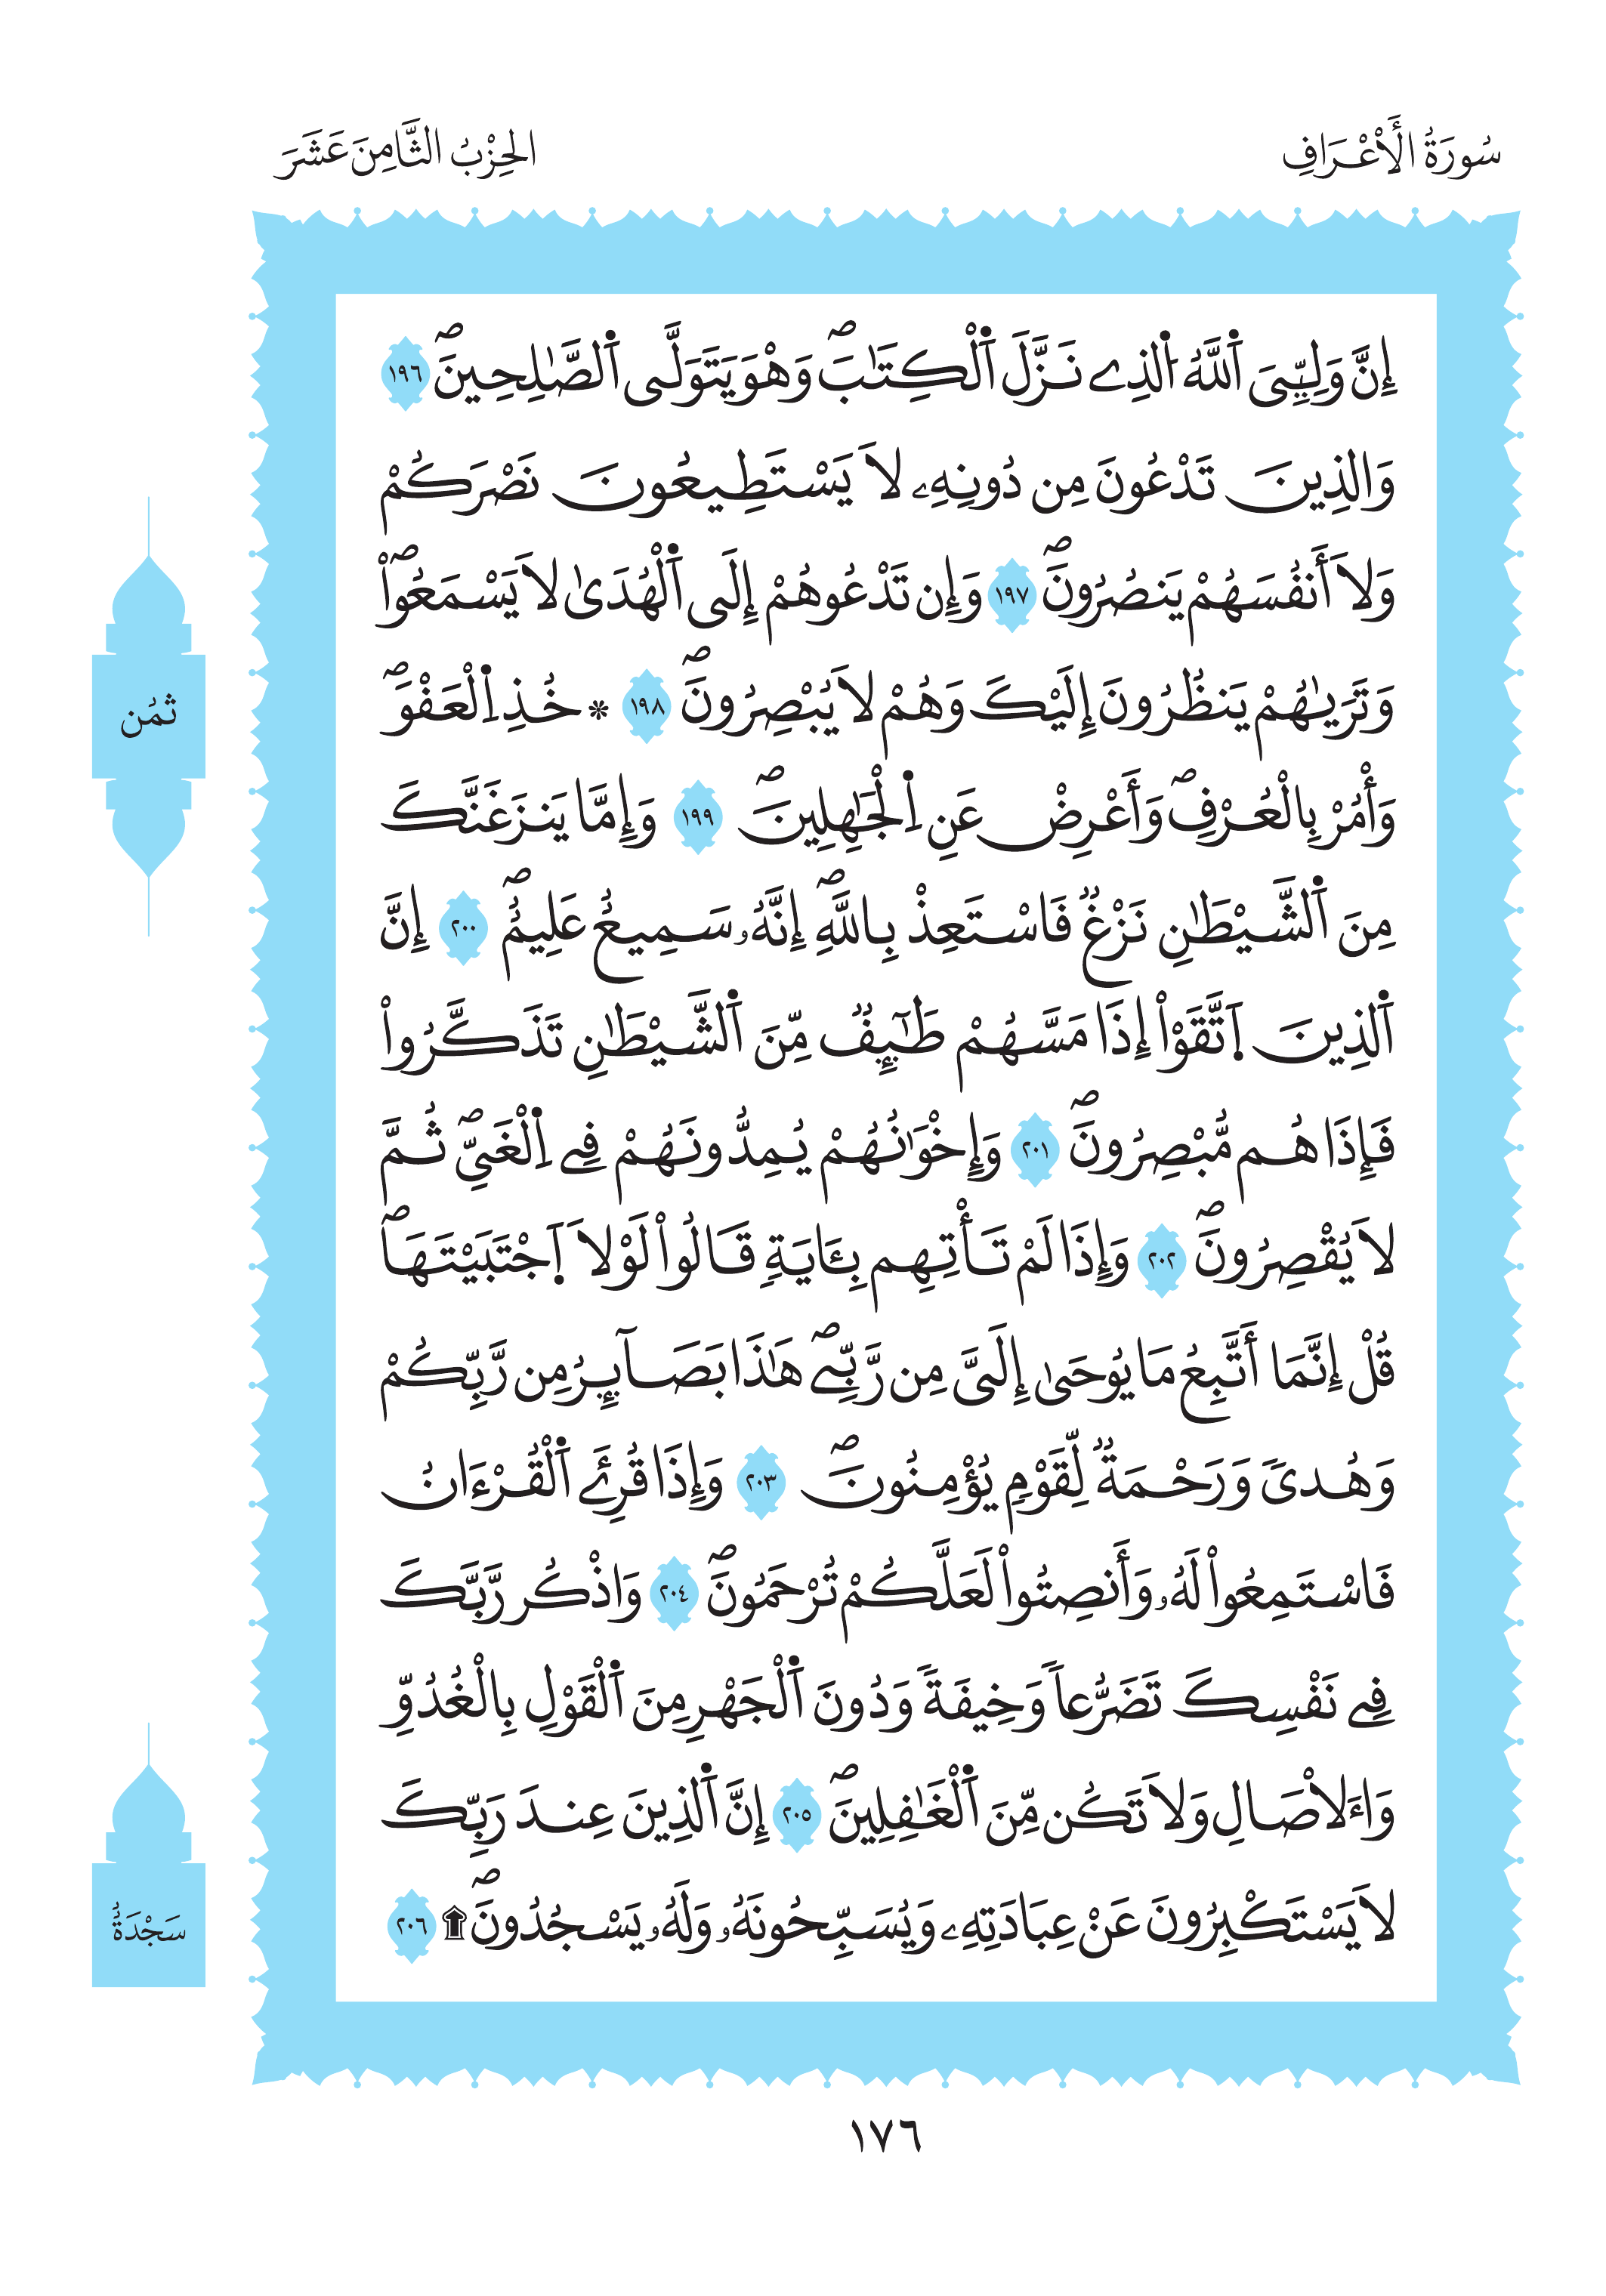 سُورَةُ الْأَعْرَافِ
الحِزْبُ الثَّامِنَ عَشَرَ
إِنَّ وَلِـِّۧيَ اَ۬للَّهُ اُ۬لذِے نَزَّلَ اَ۬لْكِتَٰبَۖ وَهْوَ يَتَوَلَّى اَ۬لصَّٰلِحِينَۖ ١٩٦
وَالذِينَ تَدْعُونَ مِن دُونِهِۦ لَا يَسْتَطِيعُونَ نَصْرَكُمْ
وَلَا أَنفُسَهُمْ يَنصُرُونَۖ ١٩٧ وَإِن تَدْعُوهُمْ إِلَى اَ۬لْهُدَىٰ لَا يَسْمَعُواْۖ
وَتَرَيٰهُمْ يَنظُرُونَ إِلَيْكَ وَهُمْ لَا يُبْصِرُونَۖ ١٩٨ * خُذِ اِ۬لْعَفْوَۖ
وَأْمُرْ بِالْعُرْفِۖ وَأَعْرِضْ عَنِ اِ۬لْجَٰهِلِينَۖ ١٩٩ وَإِمَّا يَنزَغَنَّكَ
مِنَ اَ۬لشَّيْطَٰنِ نَزْغٌ فَاسْتَعِذْ بِاللَّهِۖ إِنَّهُۥ سَمِيعٌ عَلِيمٌۖ ٢٠٠ إِنَّ
اَ۬لذِينَ اَ۪تَّقَوْاْ إِذَا مَسَّهُمْ طَٰٓئِفٌ مِّنَ اَ۬لشَّيْطَٰنِ تَذَكَّرُواْ
فَإِذَا هُم مُّبْصِرُونَۖ ٢٠١ وَإِخْوَٰنُهُمْ يُمِدُّونَهُمْ فِے اِ۬لْغَيِّۖ ثُمَّ
لَا يُقْصِرُونَۖ ٢٠٢ وَإِذَا لَمْ تَأْتِهِم بِـَٔايَةٖ قَالُواْ لَوْلَا اَ۪جْتَبَيْتَهَاۖ
قُلْ إِنَّمَا أَتَّبِعُ مَا يُوحَىٰ إِلَيَّ مِن رَّبِّےۖ هَٰذَا بَصَآئِرُ مِن رَّبِّكُمْ
وَهُدىٗ وَرَحْمَةٌ لِّقَوْمٖ يُؤْمِنُونَۖ ٢٠٣ وَإِذَا قُرِئَ اَ۬لْقُرْءَانُ
فَاسْتَمِعُواْ لَهُۥ وَأَنصِتُواْ لَعَلَّكُمْ تُرْحَمُونَۖ ٢٠٤ وَاذْكُر رَّبَّكَ
فِے نَفْسِكَ تَضَرُّعاٗ وَخِيفَةٗ وَدُونَ اَ۬لْجَهْرِ مِنَ اَ۬لْقَوْلِ بِالْغُدُوِّ
وَاءَلَاصَالِ وَلَا تَكُن مِّنَ اَ۬لْغَٰفِلِينَۖ ٢٠٥ إِنَّ اَ۬لذِينَ عِندَ رَبِّكَ
لَا يَسْتَكْبِرُونَ عَنْ عِبَادَتِهِۦ وَيُسَبِّحُونَهُۥ وَلَهُۥ يَسْجُدُونَۖ ۩ ٢٠٦
ثمُن
سَجْدَةٌ
١٧٦